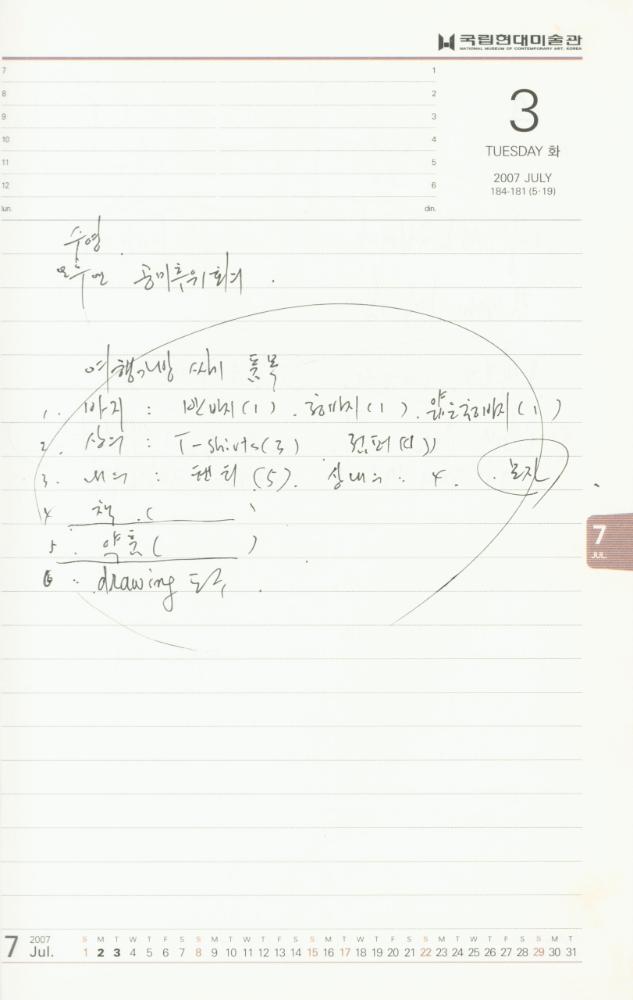 국립현대미술관
NATIONAL MUSEUM OF CONTEMPORARY ART, KOREA
7 1
8 2
9 3
10 4
11 5
12 6
lun. din.
3
TUESDAY 화
2007 JULY
184-181 (5·19)
수영
오후 공미추위회의.
여행가방 싸기 품목
1. 바지 : 반바지(1). 청바지(1). 얇은 바지(1)
2. 상의 : T-shirts(3) 점퍼(1)
3. 내의 : 팬티 (5). 상내의 4. 모자
4 책. ( )
5. 약품 ( )
6. drawing 도구.
7
JUL.
7 2007 Jul.
S M T W T F S S M T W T F S S M T W T F S S M T W T F S S M T
1 2 3 4 5 6 7 8 9 10 11 12 13 14 15 16 17 18 19 20 21 22 23 24 25 26 27 28 29 30 31